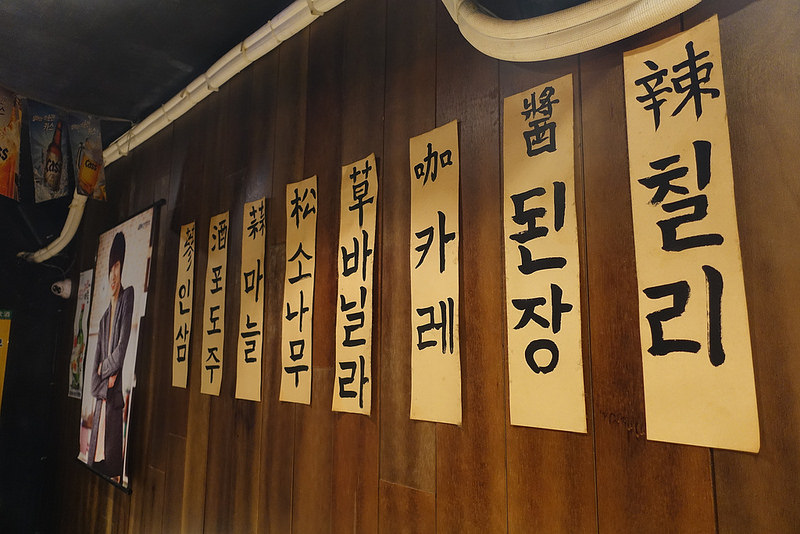 蔘인삼
酒포도주
蒜마늘
松소나무
草바닐라
咖카레
醬된장
辣칠리
Cass
Cass